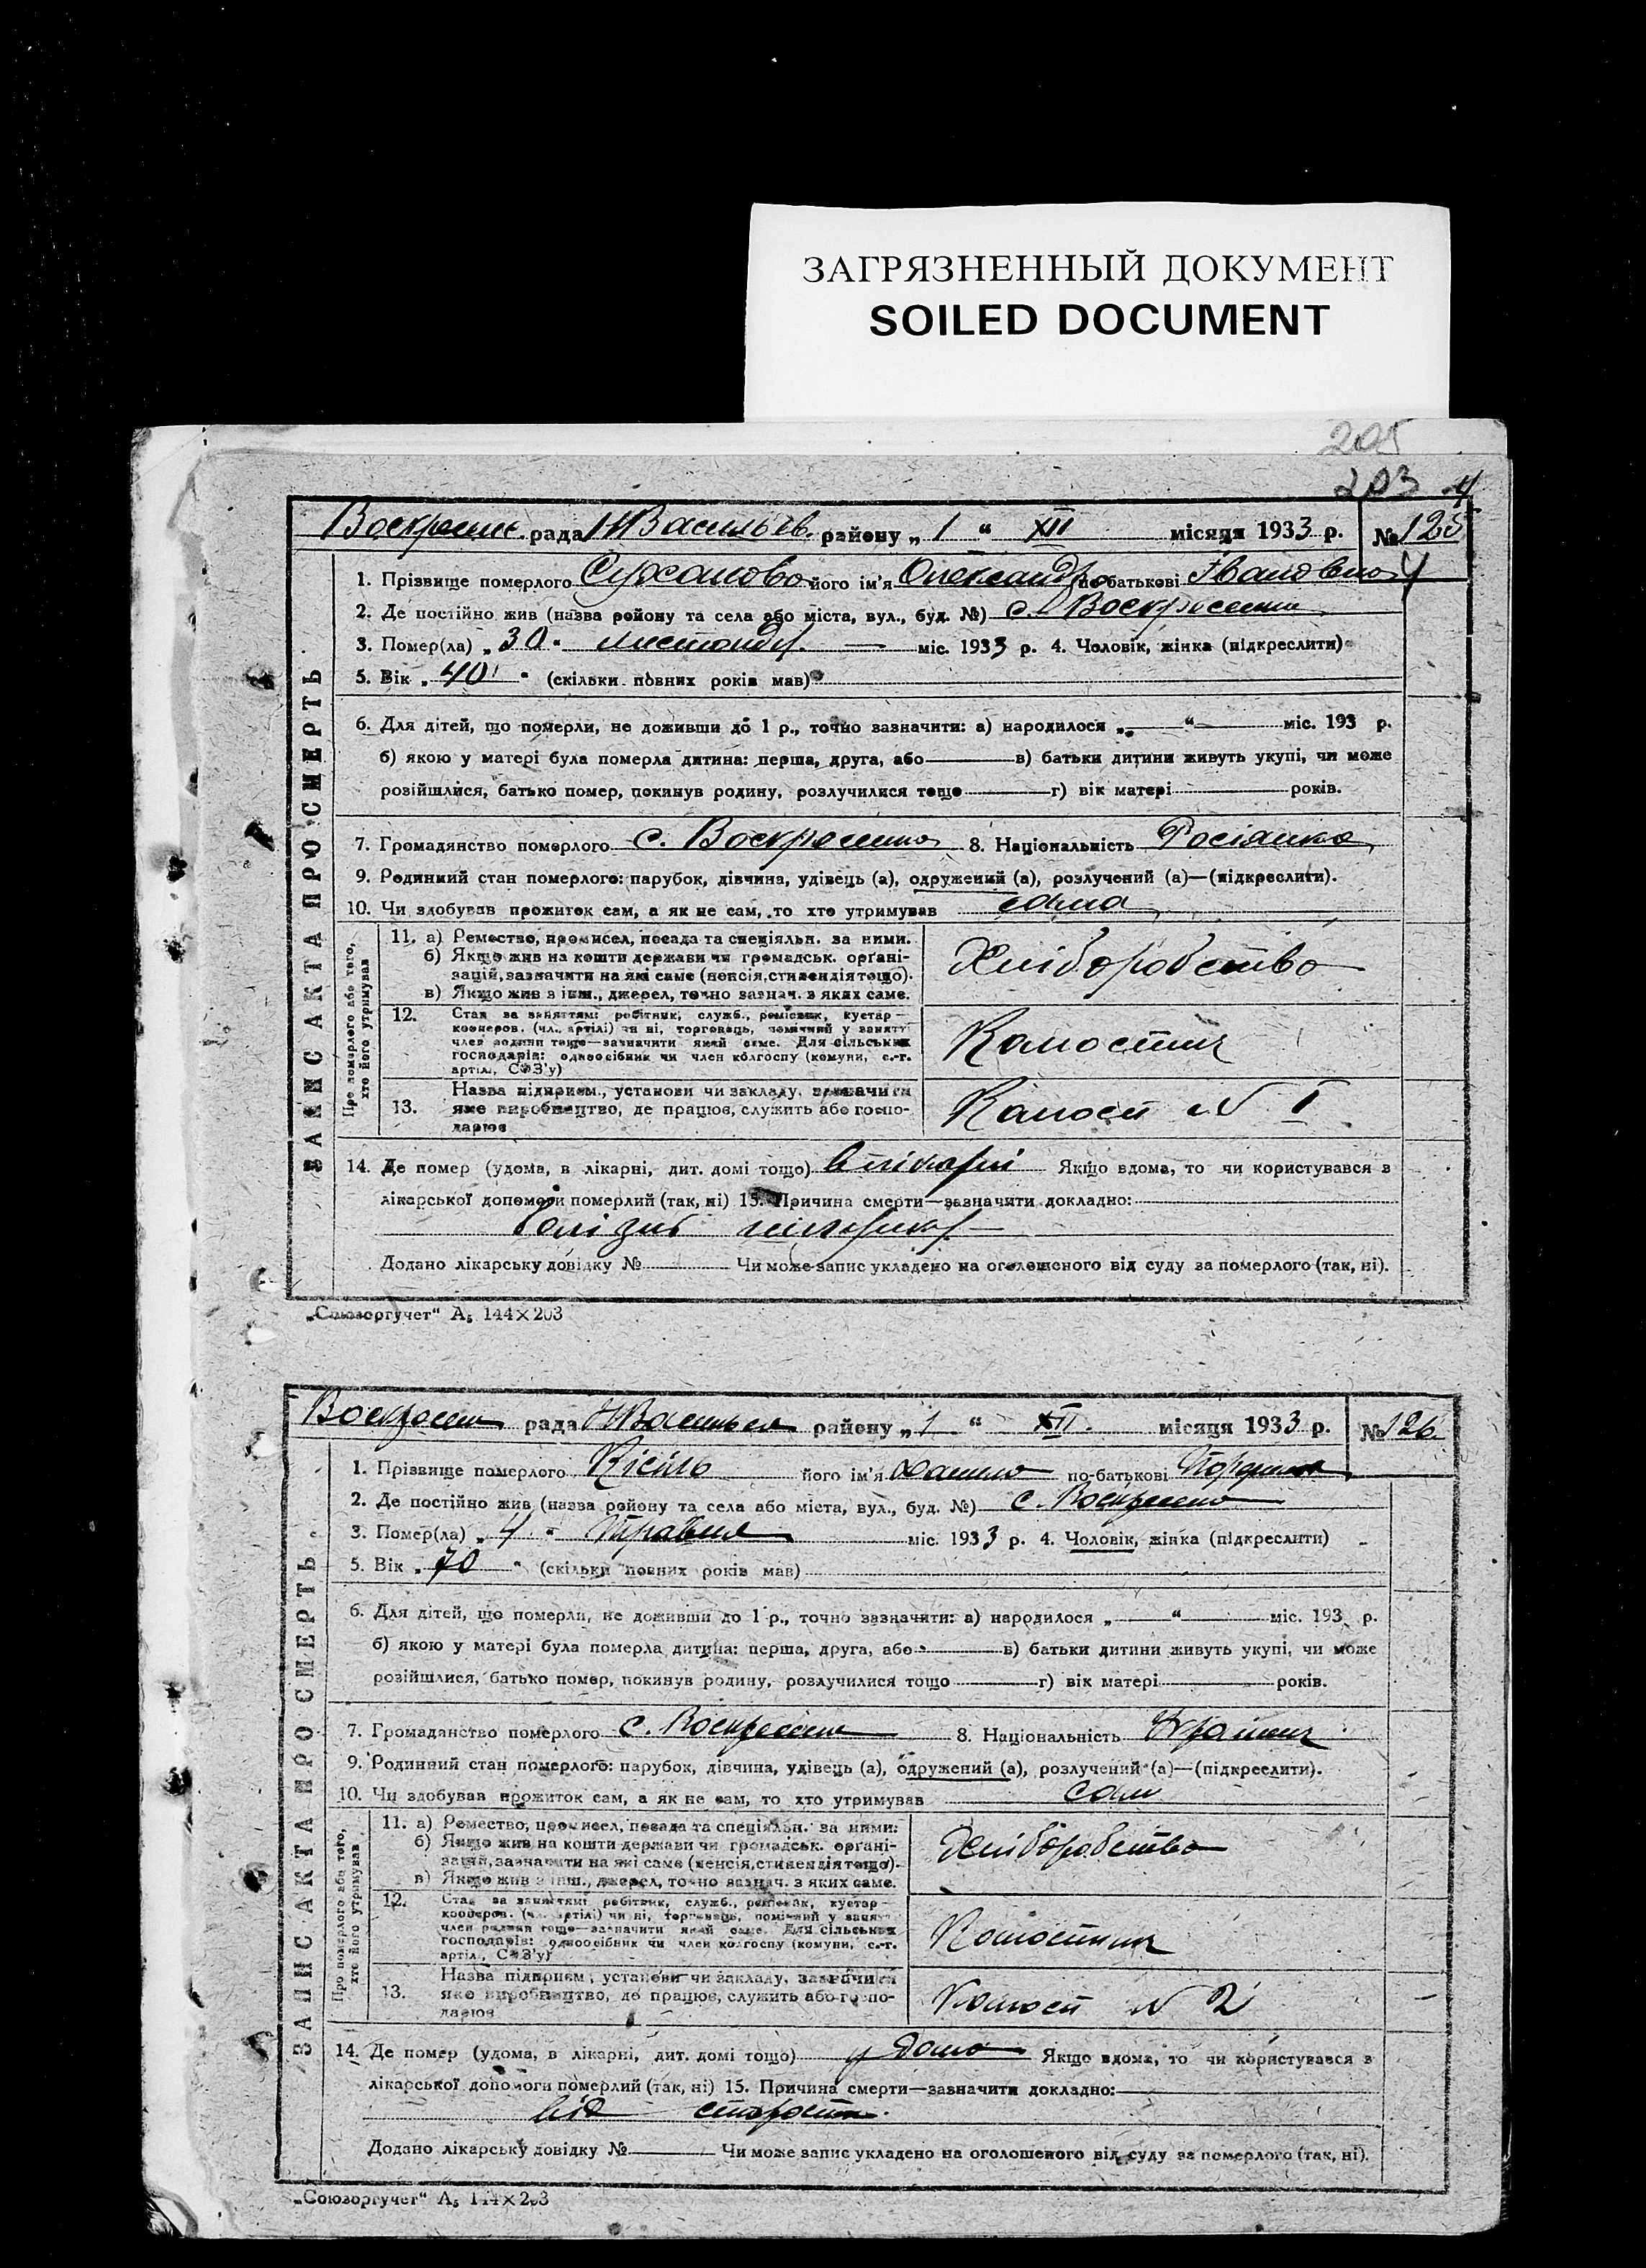 ЗАГРЯЗНЕННЫЙ ДОКУМЕНТ
SOILED DOCUMENT
205
203
Воскресенс. рада Н Васильев. району „ 1 “ XII місяця 1933 р. № 125
1. Прізвище померлого його ім'я Олександра по-батькові Івановна
2. Де постійно жив (назва району та села або міста, вул., буд. №) с. Воскресенка
3. Помер(ла) „ 30 “ листопада міс. 1933 р. 4. Чоловік, жінка (підкреслити)
5. Вік „ 40 “ (скільки повних років мав)
6. Для дітей, що померли, не доживши до 1 р., точно зазначити: а) народилося „ “ міс. 193 р.
б) якою у матері була померла дитина: перша, друга, або в) батьки дитини живуть укупі, чи може
розійшлися, батько помер, покинув родину, розлучилися тощо г) вік матері років.
7. Громадянство померлого с. Воскресенка 8. Національність Росіянка
9. Родинний стан померлого: парубок, дівчина, удівець (а), одружений (а), розлучений (а)—(підкреслити).
10. Чи здобував прожиток сам, а як не сам, то хто утримував сама
ЗАПИС АКТА ПРО СМЕРТЬ
Про померлого або того, хто його утримував
11. а) Ремество, промисел, посада та спеціяльн. за ними.
б) Якщо жив на кошти держави чи громадськ. орґані-
зацій, зазначити на які саме (пенсія, стипендія тощо).
в) Якщо жив з інш., джерел, точно зазнач. з яких саме.
Хліборобство
12. Стан за заняттям: робітник, служб., ремісник, кустар—
кооперов. (чл. артілі) чи ні, торговець, помічний у занятті
член родини тощо—зазначити який саме. Для сільських
господарів: одноосібник чи член колгоспу (комуни, с.-г.
артіл., СОЗ'у)
13. Назва підприєм., установи чи закладу, зазначити
яке виробництво, де працює, служить або госпо-
дарює
№ 1
14. Де помер (удома, в лікарні, дит. домі тощо) в лікарні Якщо вдома, то чи користувався в
лікарської допомоги померлий (так, ні) 15. Причина смерти—зазначити докладно:
Додано лікарську довідку № Чи може запис укладено на оголошеного від суду за померлого (так, ні).
„Союзоргучет“ А₅ 144×203
Воскресен рада Н Васильев району „ 1 “ XII. місяця 1933 р. № 126
1. Прізвище померлого Кісіль його ім'я Данило по-батькові
2. Де постійно жив (назва району та села або міста, вул., буд. №) с. Воскресенка
3. Помер(ла) „ 4 “ Травня міс. 1933 р. 4. Чоловік, жінка (підкреслити)
5. Вік „ 70 “ (скільки повних років мав)
6. Для дітей, що померли, не доживши до 1 р., точно зазначити: а) народилося „ “ міс. 193 р.
б) якою у матері була померла дитина: перша, друга, або в) батьки дитини живуть укупі, чи може
розійшлися, батько помер, покинув родину, розлучилися тощо г) вік матері років.
7. Громадянство померлого с. Воскресенка 8. Національність
9. Родинний стан померлого: парубок, дівчина, удівець (а), одружений (а), розлучений (а)—(підкреслити).
10. Чи здобував прожиток сам, а як не сам, то хто утримував сам
ЗАПИС АКТА ПРО СМЕРТЬ
Про померлого або того, хто його утримував
11. а) Ремество, промисел, посада та спеціяльн. за ними.
б) Якщо жив на кошти держави чи громадськ. орґані-
зацій, зазначити на які саме (пенсія, стипендія тощо).
в) Якщо жив з інш., джерел, точно зазнач. з яких саме.
Хліборобство
12. Стан за заняттям: робітник, служб., ремісник, кустар—
кооперов. (чл. артілі) чи ні, торговець, помічний у занятті
член родини тощо—зазначити який саме. Для сільських
господарів: одноосібник чи член колгоспу (комуни, с.-г.
артіл., СОЗ'у)
13. Назва підприєм., установи чи закладу, зазначити
яке виробництво, де працює, служить або госпо-
дарює
№ 2
14. Де помер (удома, в лікарні, дит. домі тощо) у дома Якщо вдома, то чи користувався в
лікарської допомоги померлий (так, ні) 15. Причина смерти—зазначити докладно:
від старости.
Додано лікарську довідку № Чи може запис укладено на оголошеного від суду за померлого (так, ні).
„Союзоргучет“ А₅ 144×203